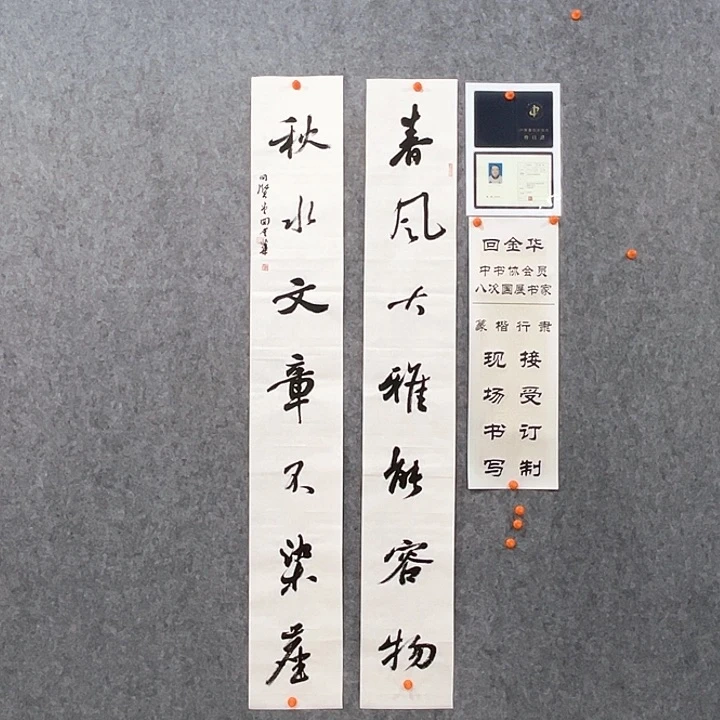 春风大雅能容物
秋水文章不染尘
回金华
中书协会员
八次国展书家
篆楷行隶
接受订制
现场书写